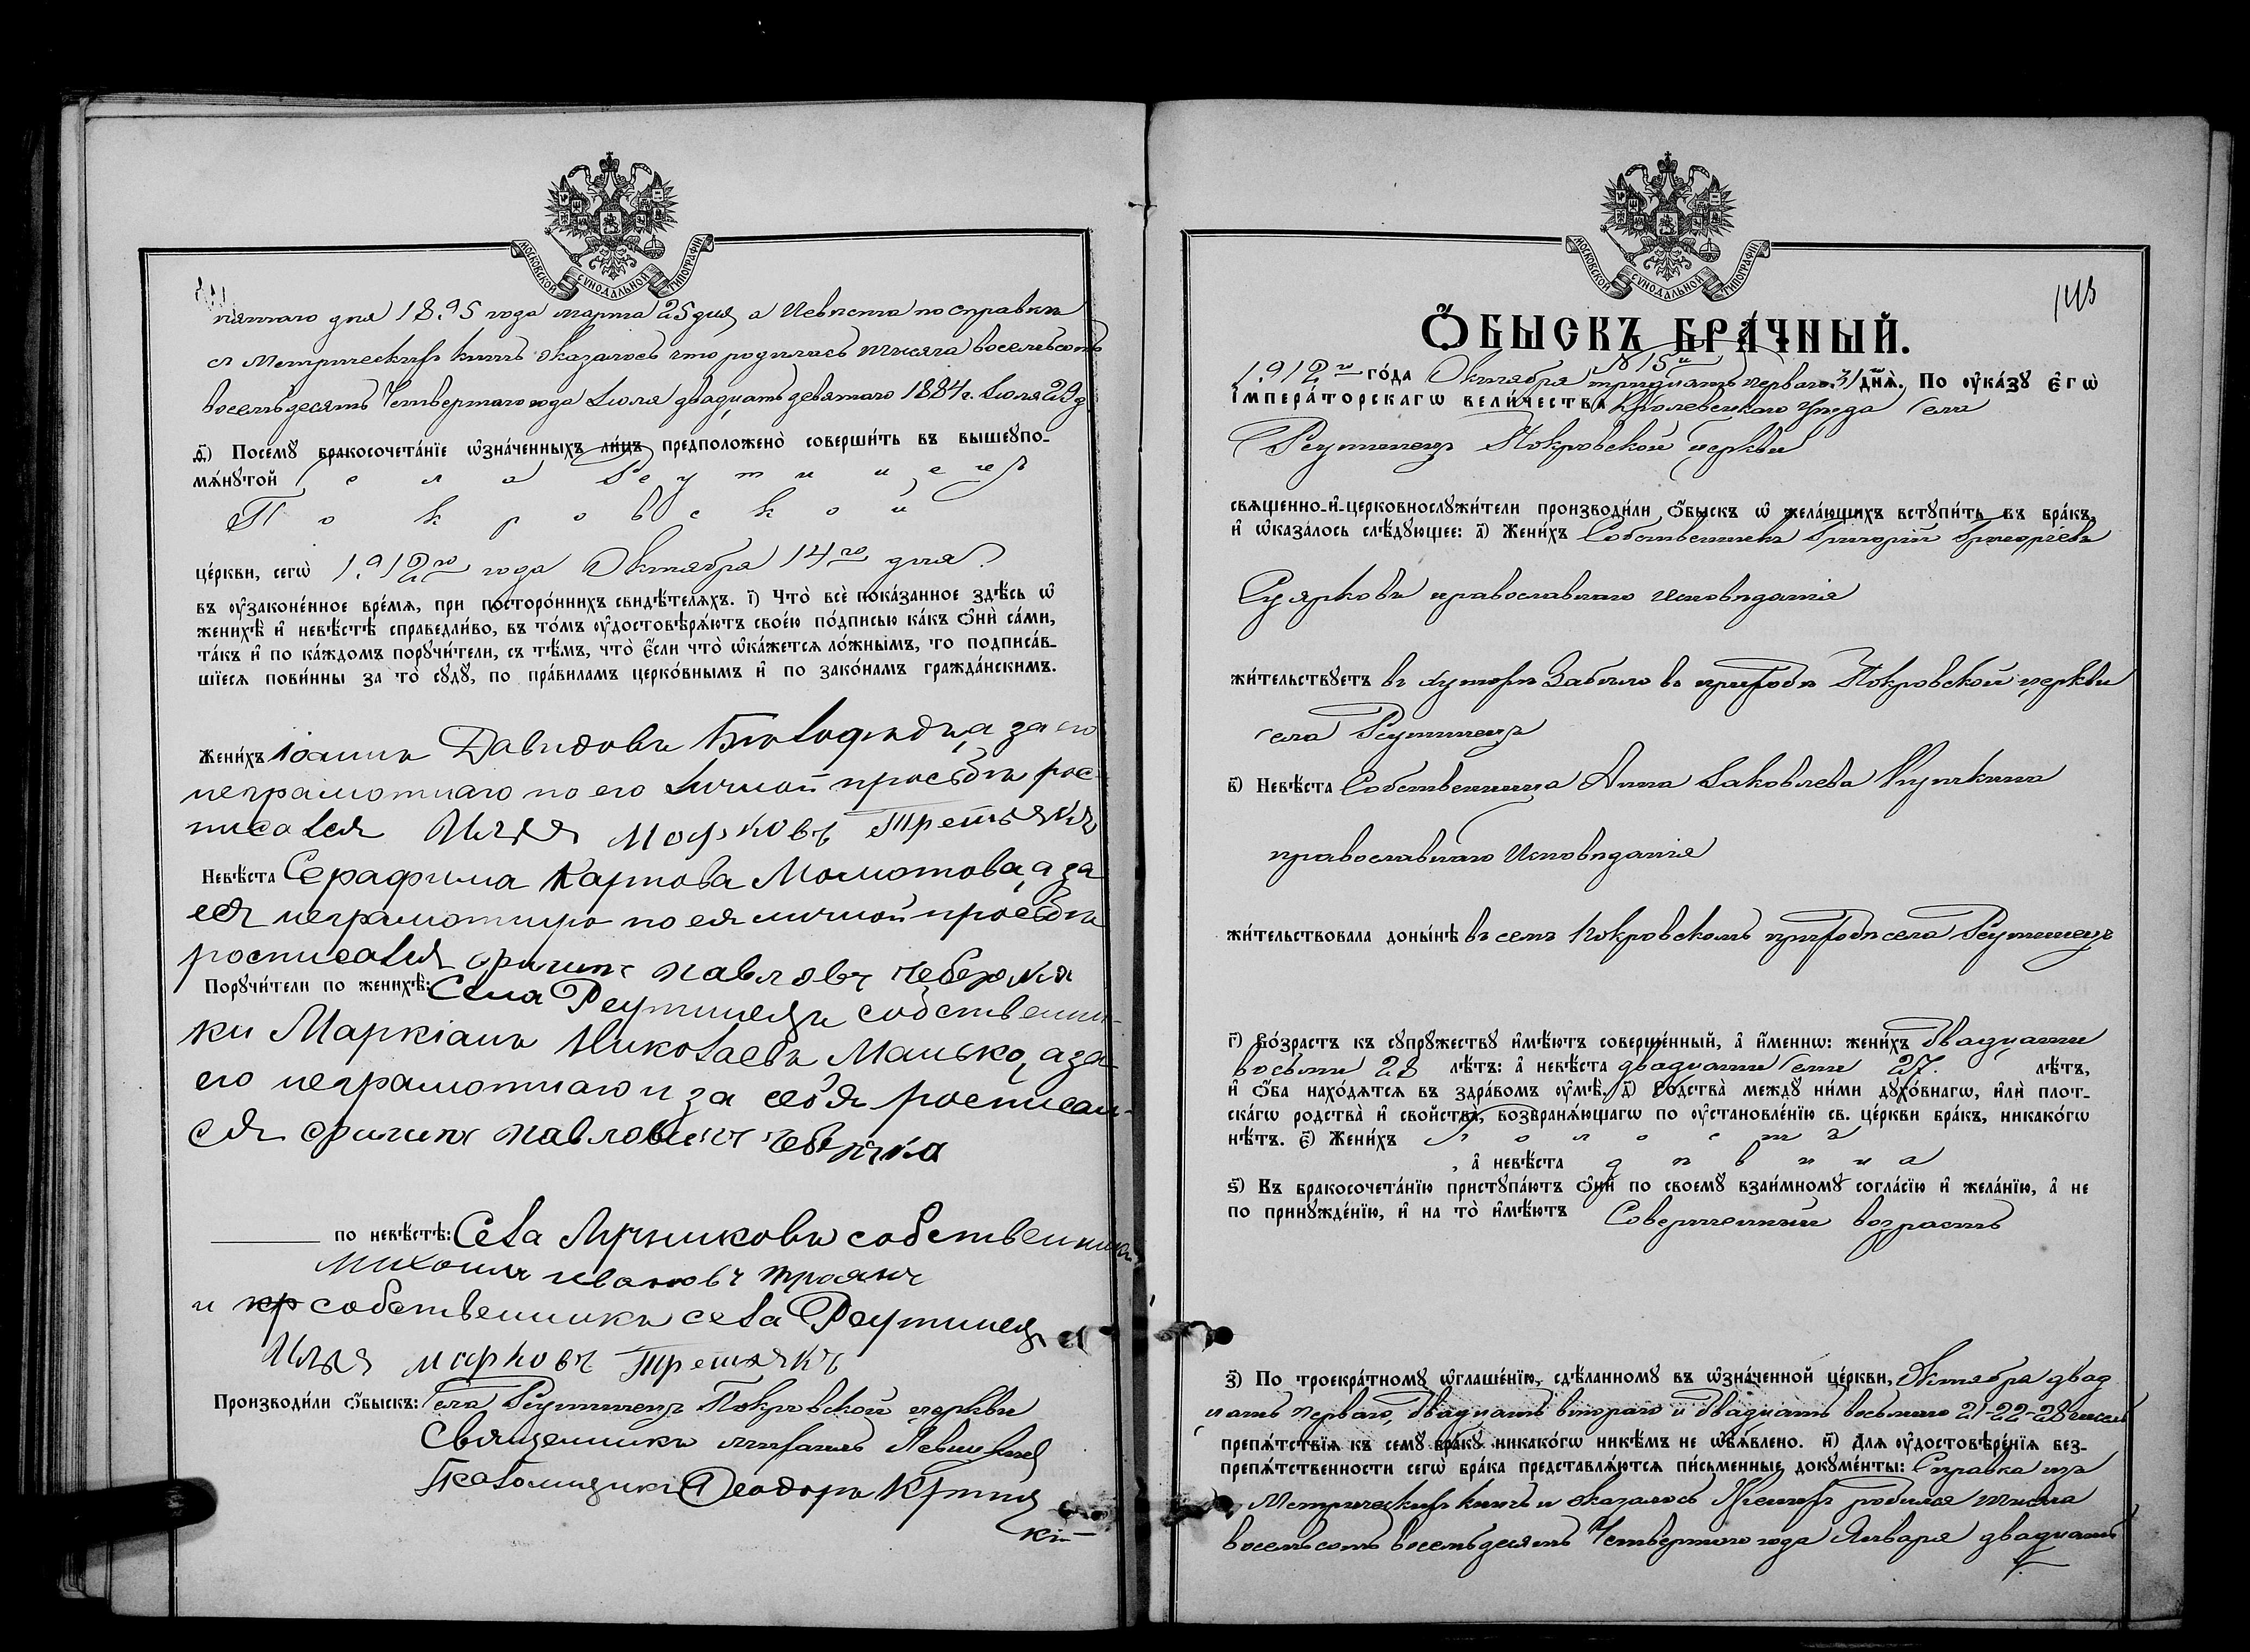 МОСКОВСКОЙ СѴНОДАЛЬНОЙ ТИПОГРАФІИ
пятаго дня 1895 года марта 25 дня, а Невѣста по справкѣ
съ Метрическихъ книгъ оказалось что родилась тысяча восемьсотъ
восемьдесятъ Четвертаго года Іюля двадцать девятаго 1884 г. Іюля 29 д.
д҃і) Посемꙋ бракосочета́нїе ѡ҆зна́ченныхъ ли́цъ предположено̀ соверши́ть въ вышеꙋпо-
мѧ́нꙋтой села Реутинецъ
Покровской
це́ркви, сегѡ̀ 1912го года Октября 14го дня
въ ᲂу҆законе́нное вре́мѧ, при посторо́ннихъ свидѣ́телѧхъ. і҃) Что̀ всѐ пока́занное здѣ́сь ѡ҆
женихѣ̀ и҆ невѣ́стѣ справедли́во, въ то́мъ ᲂу҆достовѣрѧ́ютъ свое́ю по́дписью ка́къ ѻ҆нѝ са́ми,
та́къ и҆ по ка́ждомъ порꙋчи́тели, съ тѣ́мъ, что̀ є҆́сли что̀ ѡ҆ка́жетсѧ ло́жнымъ, то подписа́в-
шїесѧ пови́нны за то̀ сꙋдꙋ̀, по пра́виламъ церко́внымъ и҆ по зако́намъ гражда́нскимъ.
Жени́хъ Іоаннъ Давидовъ а за его
неграмотнаго по его личной просьбѣ рос-
писался Илья Марковъ Третьякъ
Невѣ́ста Серафима Карпова Молотова, а за
ея неграмотную по ея личной просьбѣ
росписался Павловъ
Порꙋчи́тели по женихѣ̀: Села Реутинецъ собственни-
ки Маркіанъ Николаевъ Манько, а за
его неграмотнаго и за себя росписал-
ся
по невѣ́стѣ: Села Лучниковъ собственникъ
Михаилъ Ивановъ Троянъ
и кр собственникъ села Реутинецъ
Илья Марковъ Третьякъ
Производи́ли ѻ҆́быскъ: Села Реутинецъ Покровской церкви
Священникъ Михаилъ Левицкій
Псаломщикъ Ѳеодоръ Криниц
кій
МОСКОВСКОЙ СѴНОДАЛЬНОЙ ТИПОГРАФІИ
143
Ѻ҆́БЫСКЪ БРА́ЧНЫЙ.
№ 15й
1912го го́да Октября тридцать перваго 31 днѧ̀. По ᲂу҆ка́зꙋ є҆гѡ̀
і҆мпера́торскагѡ вели́чества Кролевецкаго уѣзда села
Реутинецъ Покровской церкви
свѧще́нно-и҆-церковнослꙋжи́тели производи́ли ѻ҆́быскъ ѡ҆ жела́ющихъ встꙋпи́ть въ бра́къ,
и҆ ѡ҆каза́лось слѣ́дꙋющее: а҃) Жени́хъ Собственникъ Григорій Григоріевъ
Суярковъ православнаго исповѣданія
жи́тельствꙋетъ въ хуторѣ Забило въ приходѣ Покровской церкви
села Реутинецъ
в҃) Невѣ́ста Собственница Анна Іаковлева
православнаго Исповѣданія
жи́тельствовала доны́нѣ въ семъ Покровскомъ приходѣ села Реутинецъ
г҃) Во́зрастъ къ сꙋпрꙋ́жествꙋ и҆мѣ́ютъ соверше́нный, а҆ и҆́меннѡ: жени́хъ двадцати
восьми 28 лѣ́тъ: а҆ невѣ́ста двадцати семи 27. лѣ́тъ,
и҆ ѻ҆́ба нахо́дѧтсѧ въ здра́вомъ ᲂу҆мѣ̀. д҃) Родства̀ между ни́ми дꙋхо́внагѡ, и҆лѝ плот-
ска́гѡ родства̀ и҆ свойства̀, возбранѧ́ющагѡ по ᲂу҆становле́нїю св. це́ркви бра́къ, никако́гѡ
нѣ́тъ. є҃) Жени́хъ холостъ
, а҆ невѣ́ста дѣвица
ѕ҃) Къ бракосочета́нїю пристꙋпа́ютъ ѻ҆нѝ по своемꙋ̀ взаи́мномꙋ согла́сїю и҆ жела́нїю, а҆ не
по принꙋжде́нїю, и҆ на то̀ и҆мѣ́ютъ Совершенный возрастъ
з҃) По троекра́тномꙋ ѡ҆глаше́нїю, сдѣ́ланномꙋ въ ѡ҆зна́ченной це́ркви, Октября двад
цать перваго, двадцать второго и двадцать восьмого 21-22-28 чиселъ
препѧ́тствїѧ къ семꙋ̀ бра́кꙋ никако́гѡ никѣ́мъ не ѡ҆б̾ѧ́влено. и҃) Длѧ ᲂу҆достовѣре́нїѧ без-
препѧ́тственности сегѡ̀ бра́ка представлѧ́ютсѧ пи́сьменные докꙋме́нты: Справка изъ
Метрическихъ книгъ и оказалось Женихъ родился тысяча
восемьсотъ восемьдесятъ Четвертаго года Января двадцать